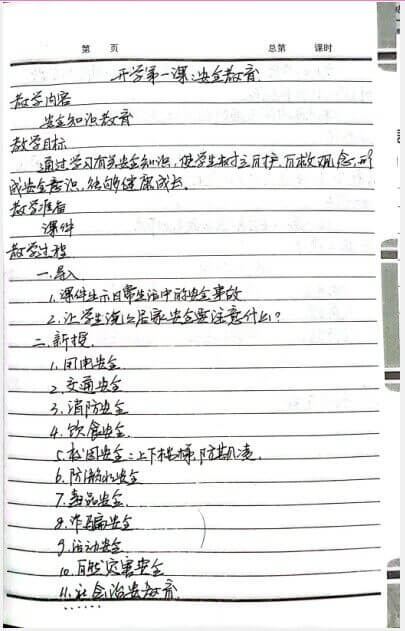 第 页 总第 课时
开学第一课:安全教育
教学内容
安全知识教育
教学目标
通过学习有关安全知识,使学生树立自护、自救观念,形
成安全意识,能够健康成长。
教学准备
课件
教学过程
一.导入
1.课件出示日常生活中的安全事故
2.让学生说说居家安全要注意什么?
二.新授
1.用电安全
2.交通安全
3.消防安全
4.饮食安全
5.校园安全:上下楼梯,防欺凌
6.防溺水安全
7.毒品安全
8.诈骗安全
9.活动安全
10.自然灾害安全
11.社会治安教育
……